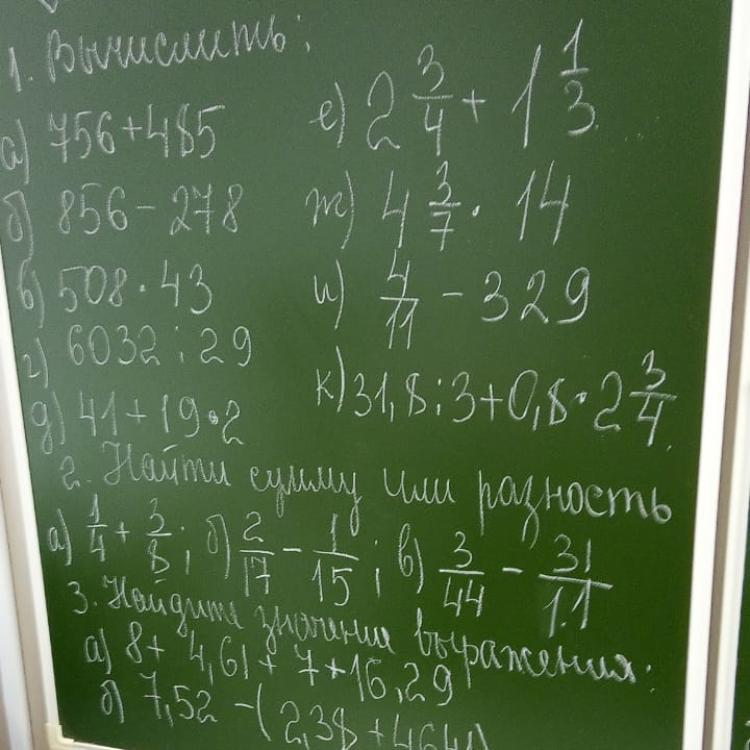 1. Вычислить:
а) 756+485
б) 856-278
в) 508·43
г) 6032:29
д) 41+19·2
е) 2 3/4 + 1 1/3
ж) 4 3/7 · 14
и) 4/11 - 329
к) 31,8:3+0,8·2 3/4
2. Найти сумму или разность
а) 1/4 + 3/8; б) 2/17 - 1/15; в) 3/44 - 31/11
3. Найдите значение выражения:
а) 8+ 4,61+7+16,29
б) 7,52 -(2,38+